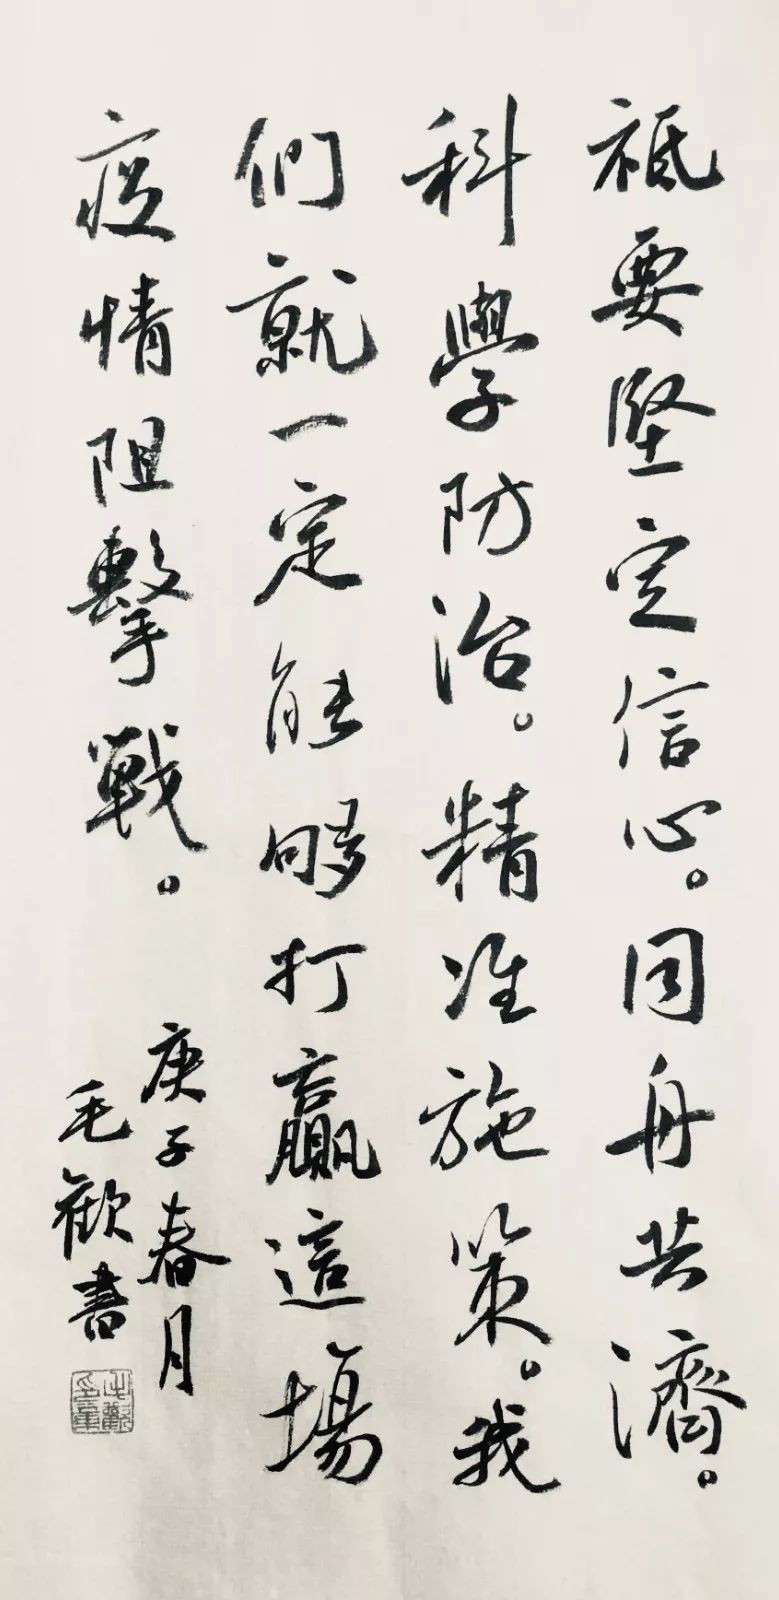 祗要堅定信心。同舟共濟。
科學防治。精准施策。我
們就一定能够打贏這場
疫情阻擊戰。
庚子春月
毛歡書